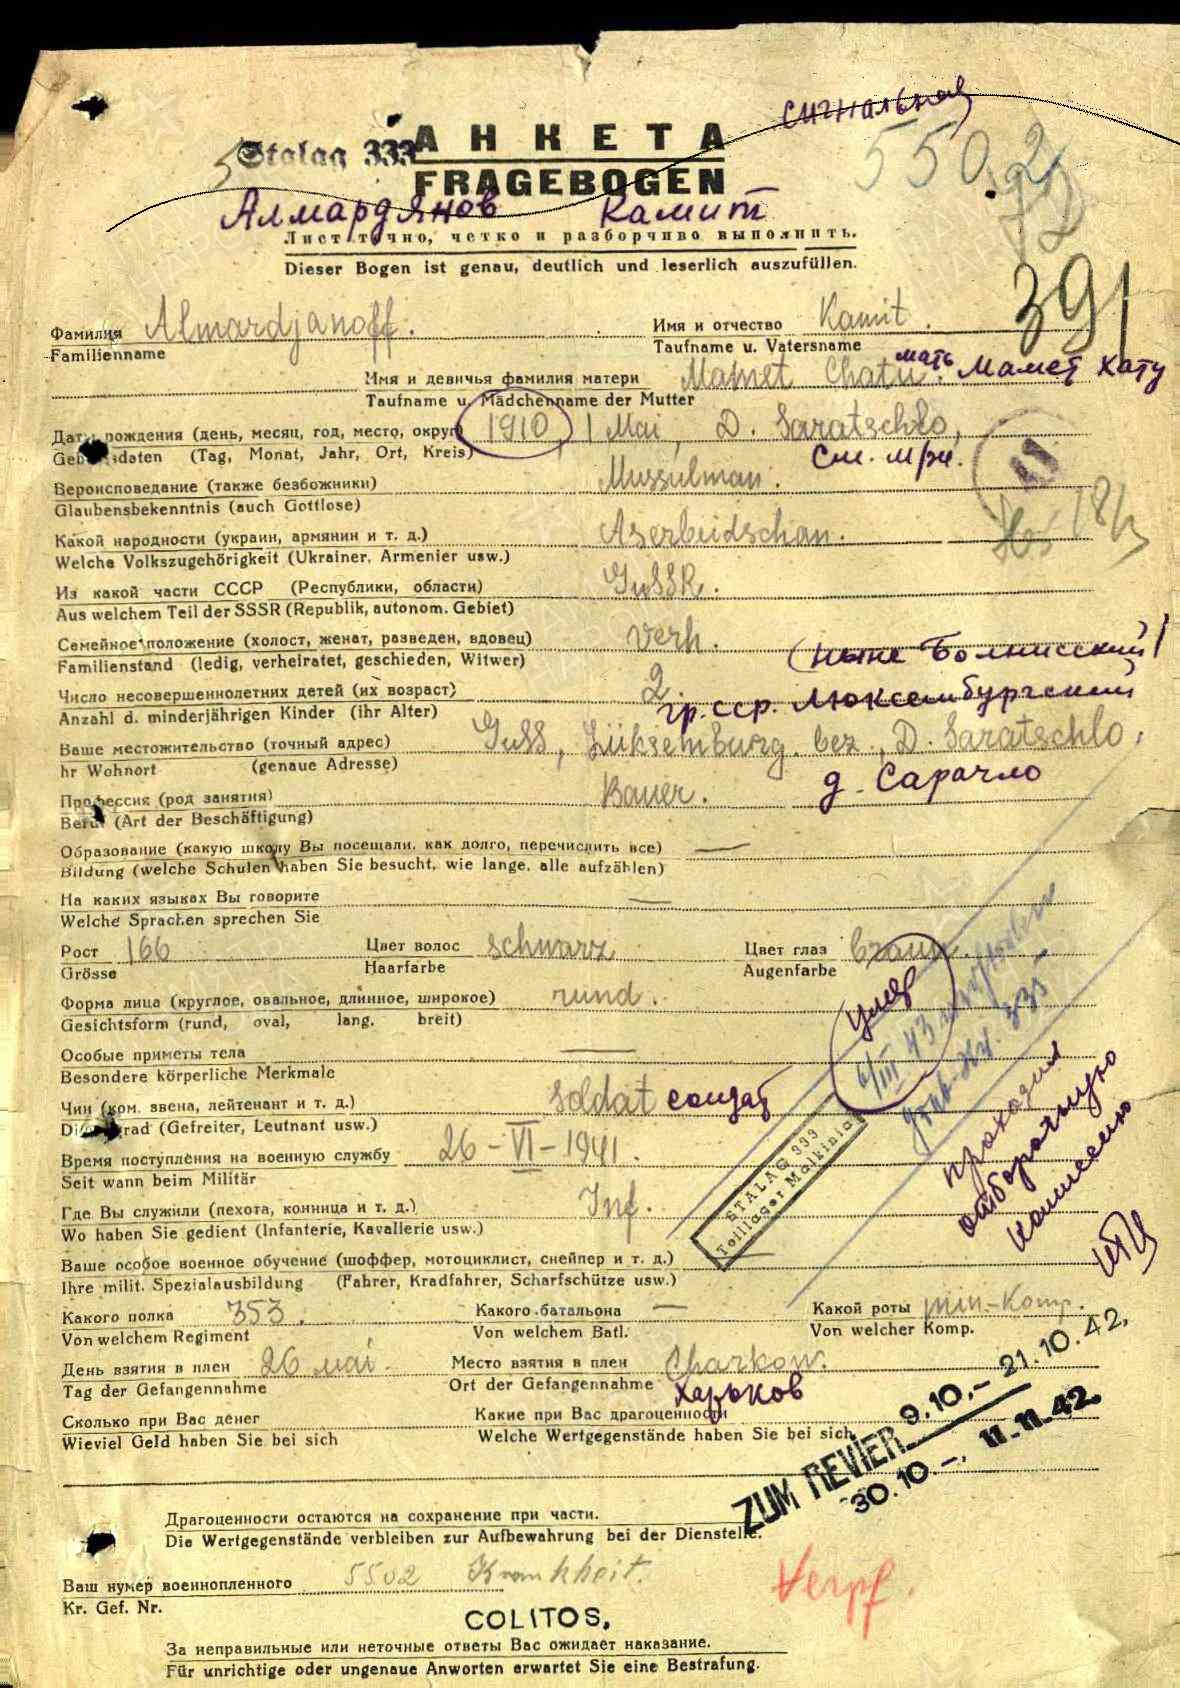 сигнальная
Stalag 333
АНКЕТА
550.2
FRAGEBOGEN
Алмардянов Камит
Лист точно, четко и разборчиво выполнить.
Dieser Bogen ist genau, deutlich und leserlich auszufüllen.
391
Фамилия Almardjanoff. Имя и отчество Kamit.
Familienname Taufname u. Vatersname
Имя и девичья фамилия матери Mamet Chatu. мать Мамет Хату
Taufname u. Mädchenname der Mutter
Дата рождения (день, месяц, год, место, округ) 1910, 1 Mai, D. Saratschlo,
Geburtsdaten (Tag, Monat, Jahr, Ort, Kreis) См. мрж.
41
Вероисповедание (также безбожники) Mussulman.
Glaubensbekenntnis (auch Gottlose)
Какой народности (украин, армянин и т. д.) Aserbeidschan.
Welche Volkszugehörigkeit (Ukrainer, Armenier usw.)
Из какой части СССР (Республики, области) GuSSR.
Aus welchem Teil der SSSR (Republik, autonom. Gebiet)
Семейное положение (холост, женат, разведен, вдовец) verh.
Familienstand (ledig, verheiratet, geschieden, Witwer) (ныне Болнисский)
Число несовершеннолетних детей (их возраст) 2
Anzahl d. minderjährigen Kinder (ihr Alter) гр. сср. Люксембургский
Ваше местожительство (точный адрес) GuSS, Lüksemburg. bez., D. Saratschlo.
hr Wohnort (genaue Adresse) д. Сарачло
Профессия (род занятия) Bauer.
Beruf (Art der Beschäftigung)
Образование (какую школу Вы посещали, как долго, перечислить все) —
Bildung (welche Schulen haben Sie besucht, wie lange, alle aufzählen)
На каких языках Вы говорите —
Welche Sprachen sprechen Sie
Рост 166 Цвет волос schwarz Цвет глаз braun.
Grösse Haarfarbe Augenfarbe
Форма лица (круглое, овальное, длинное, широкое) rund.
Gesichtsform (rund, oval, lang, breit)
умер
6/III 43 verstorben
Grab-Nr. 335
Особые приметы тела —
Besondere körperliche Merkmale
Чин (ком. звена, лейтенант и т. д.) Soldat солдат
Dienstgrad (Gefreiter, Leutnant usw.)
проходил
отборочную
комиссию
Время поступления на военную службу 26-VI-1941.
Seit wann beim Militär
STALAG 333
Teillager Malkinia
Где Вы служили (пехота, конница и т. д.) Inf.
Wo haben Sie gedient (Infanterie, Kavallerie usw.)
Ваше особое военное обучение (шоффер, мотоциклист, снейпер и т. д.) —
Ihre milit. Spezialausbildung (Fahrer, Kradfahrer, Scharfschütze usw.)
Какого полка 353. Какого батальона — Какой роты min.-Komp.
Von welchem Regiment Von welchem Batl. Von welcher Komp.
День взятия в плен 26 mai. Место взятия в плен Charkow.
Tag der Gefangennahme Ort der Gefangennahme Харьков
Сколько при Вас денег Какие при Вас драгоценности
Wieviel Geld haben Sie bei sich Welche Wertgegenstände haben Sie bei sich
ZUM REVIER 9.10.- 21.10.42.
30.10-. 11.11.42.
Драгоценности остаются на сохранение при части.
Die Wertgegenstände verbleiben zur Aufbewahrung bei der Dienstelle.
Ваш нумер военнопленного 5502 Krankheit.
Kr. Gef. Nr.
Verpf.
COLITOS.
За неправильные или неточные ответы Вас ожидает наказание.
Für unrichtige oder ungenaue Anworten erwartet Sie eine Bestrafung.